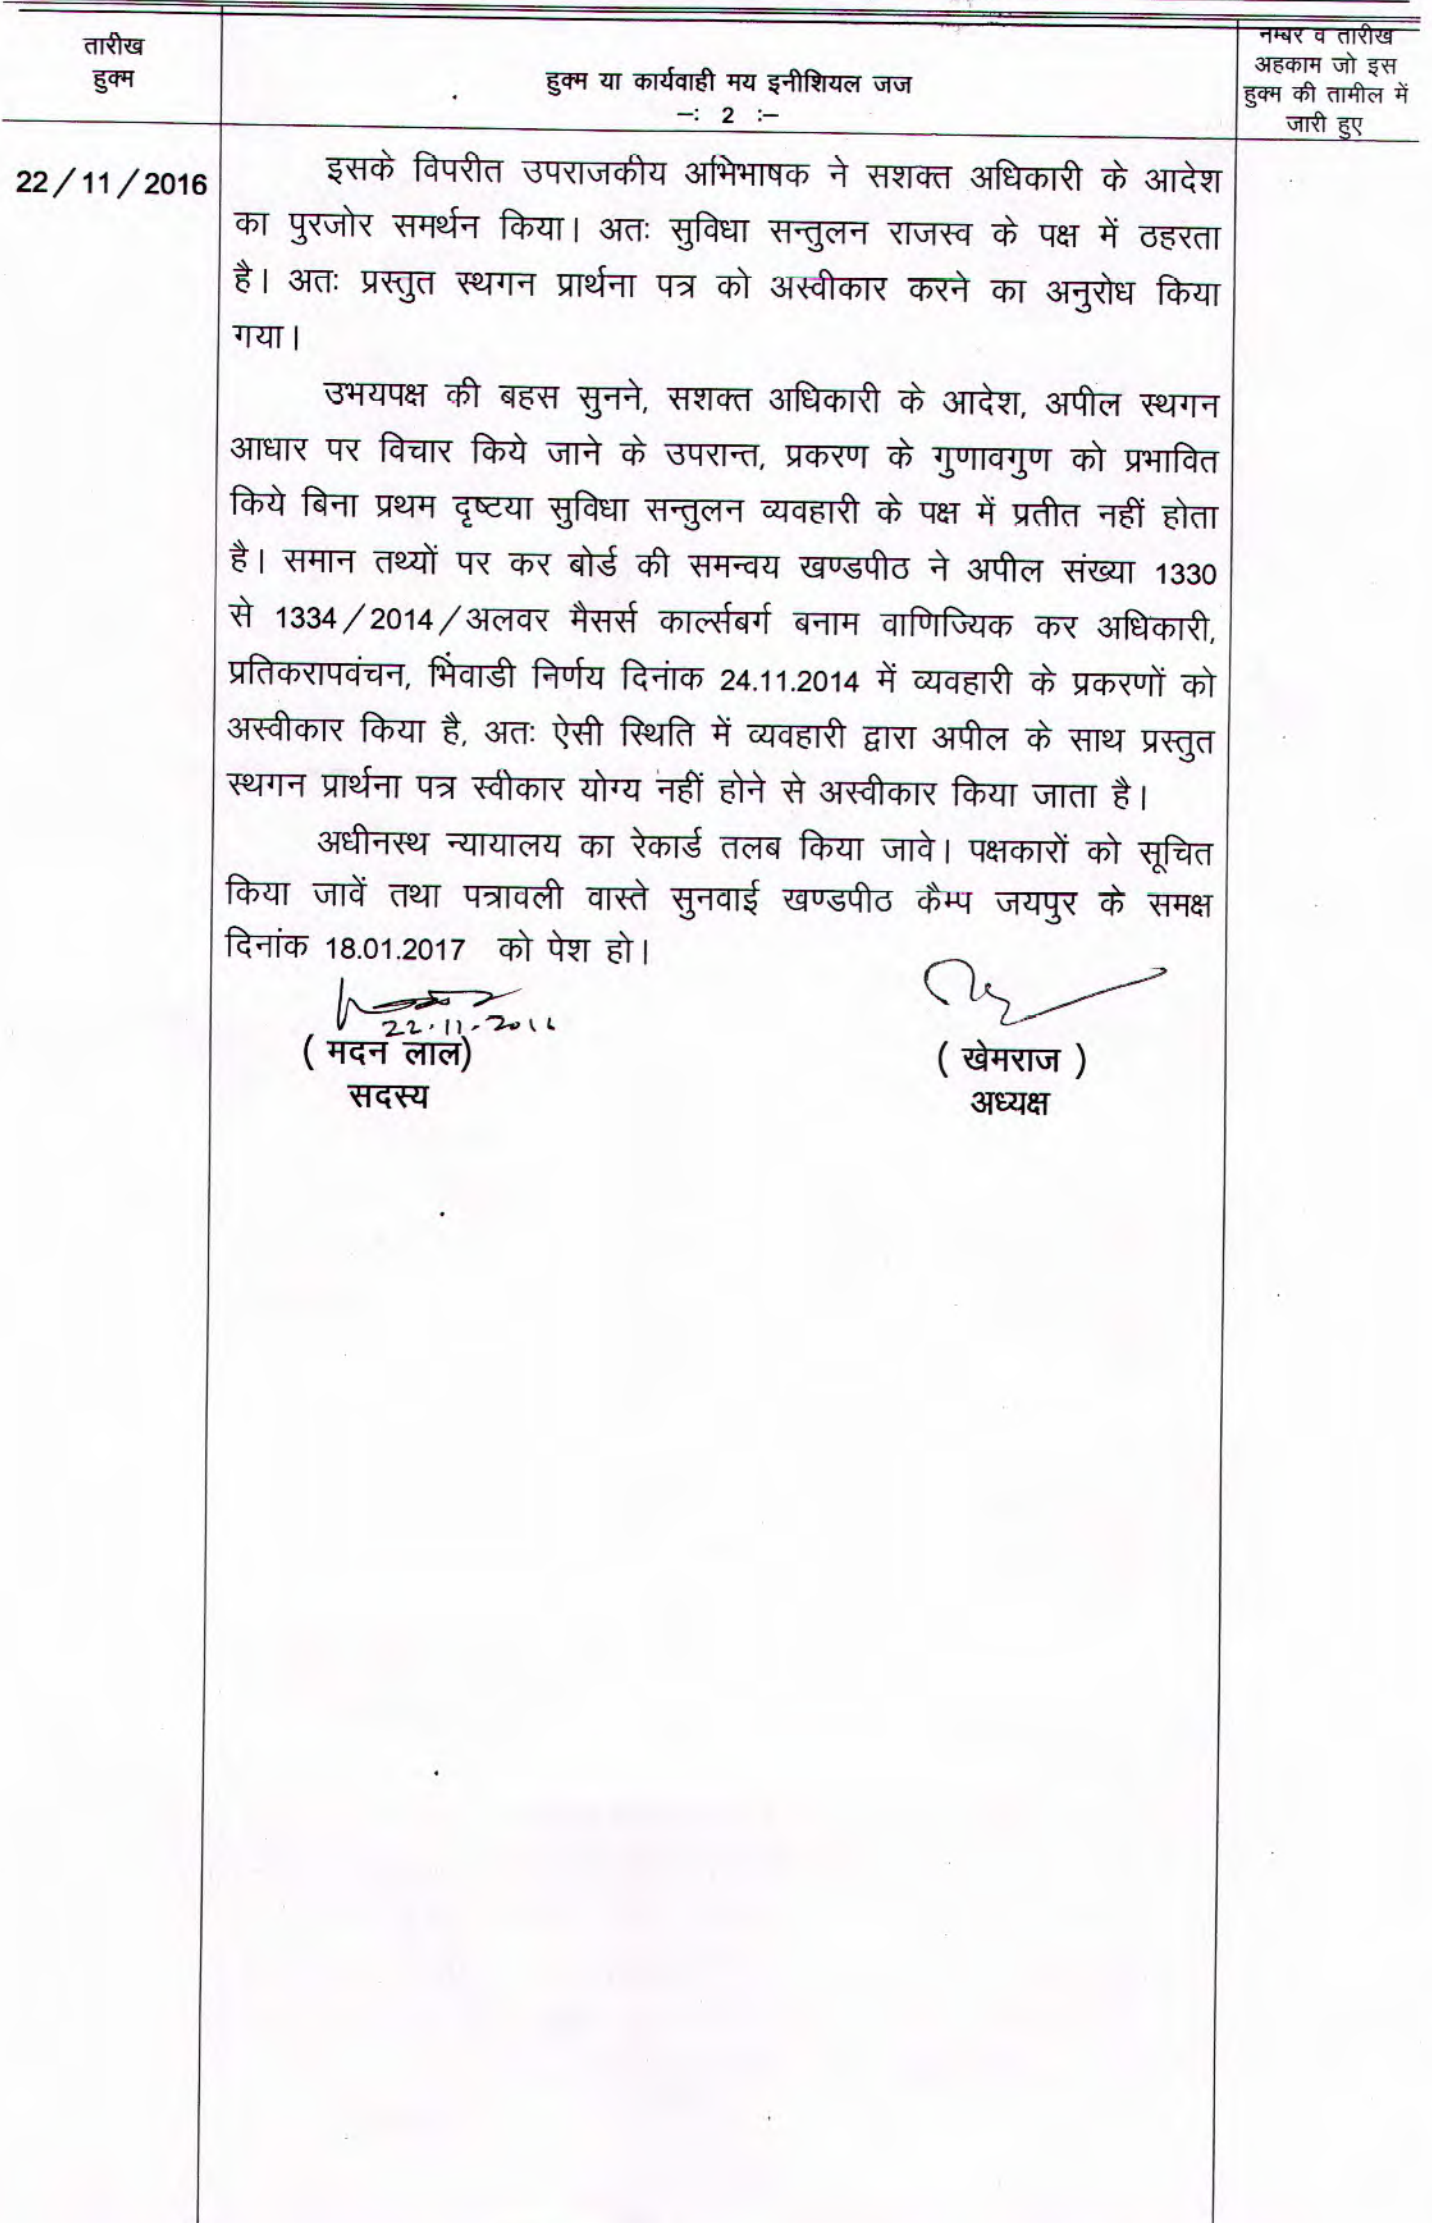 तारीख
हुक्म
हुक्म या कार्यवाही मय इनीशियल जज
–: 2 :–
नम्बर व तारीख
अहकाम जो इस
हुक्म की तामील में
जारी हुए
22/11/2016
इसके विपरीत उपराजकीय अभिभाषक ने सशक्त अधिकारी के आदेश
का पुरजोर समर्थन किया। अतः सुविधा सन्तुलन राजस्व के पक्ष में ठहरता
है। अतः प्रस्तुत स्थगन प्रार्थना पत्र को अस्वीकार करने का अनुरोध किया
गया।
उभयपक्ष की बहस सुनने, सशक्त अधिकारी के आदेश, अपील स्थगन
आधार पर विचार किये जाने के उपरान्त, प्रकरण के गुणावगुण को प्रभावित
किये बिना प्रथम दृष्टया सुविधा सन्तुलन व्यवहारी के पक्ष में प्रतीत नहीं होता
है। समान तथ्यों पर कर बोर्ड की समन्वय खण्डपीठ ने अपील संख्या 1330
से 1334/2014/अलवर मैसर्स कार्ल्सबर्ग बनाम वाणिज्यिक कर अधिकारी,
प्रतिकरापवंचन, भिंवाडी निर्णय दिनांक 24.11.2014 में व्यवहारी के प्रकरणों को
अस्वीकार किया है, अतः ऐसी स्थिति में व्यवहारी द्वारा अपील के साथ प्रस्तुत
स्थगन प्रार्थना पत्र स्वीकार योग्य नहीं होने से अस्वीकार किया जाता है।
अधीनस्थ न्यायालय का रेकार्ड तलब किया जावे। पक्षकारों को सूचित
किया जावें तथा पत्रावली वास्ते सुनवाई खण्डपीठ कैम्प जयपुर के समक्ष
दिनांक 18.01.2017 को पेश हो।
22.11.2016
( मदन लाल)
सदस्य
( खेमराज )
अध्यक्ष